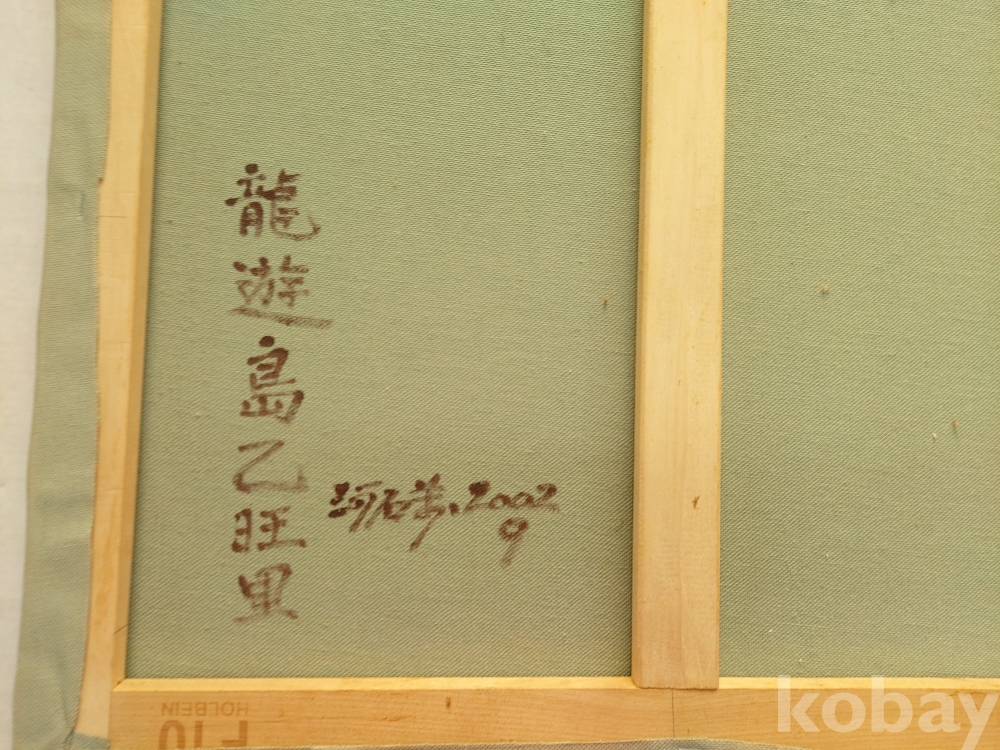 龍遊島乙旺里
2002
9
HOLBEIN
F10
kobay